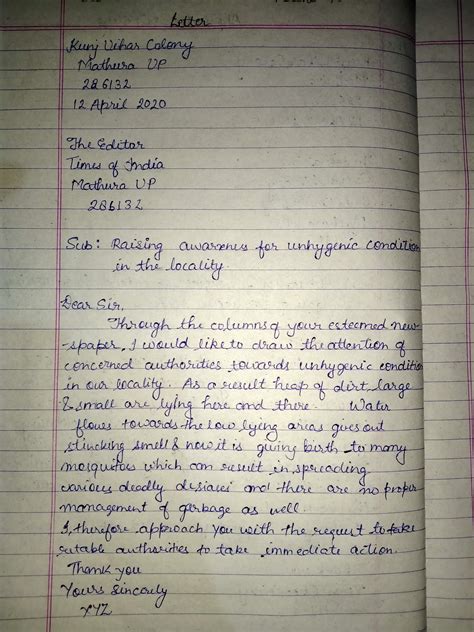 Letter
Kunj Vihar Colony
Mathura UP
286132
12 April 2020
The Editor
Times of India
Mathura UP
286132
Sub: Raising awarenes for unhygenic condition
in the locality.
Dear Sir,
Through the columns of your esteemed new-
-spaper, I would like to draw the attention of
concerned authorities towards unhygenic condition
in our locality. As a result heap of dirt, large
& small are lying here and there. Water
flows towards the low lying areas goes out
stincking smell & now it is giving birth to many
mosquitoes which can result in spreading
various deadly desiaces and there are no proper
management of garbage as well.
I, therefore approach you with the request to take
sutable authorities to take immediate action.
Thank you
Yours Sincerly
XYZ